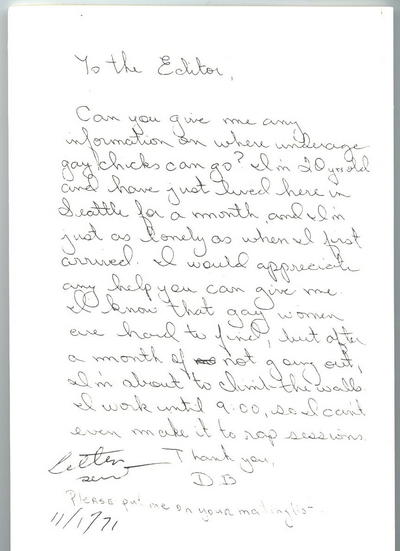 To the Editor,
Can you give me any
information on where underage
gay chicks can go? I'm 20 yrs old
and have just lived here in
Seattle for a month, and I'm
just as lonely as when I first
arrived. I would appreciate
any help you can give me.
I know that gay women
are hard to find, but after
a month of not going out,
I'm about to climb the walls.
I work until 9:00, so I can't
even make it to rap sessions.
Thank you,
D.B
Letter
sent
PLEASE put me on your mailing list-
11/1/71